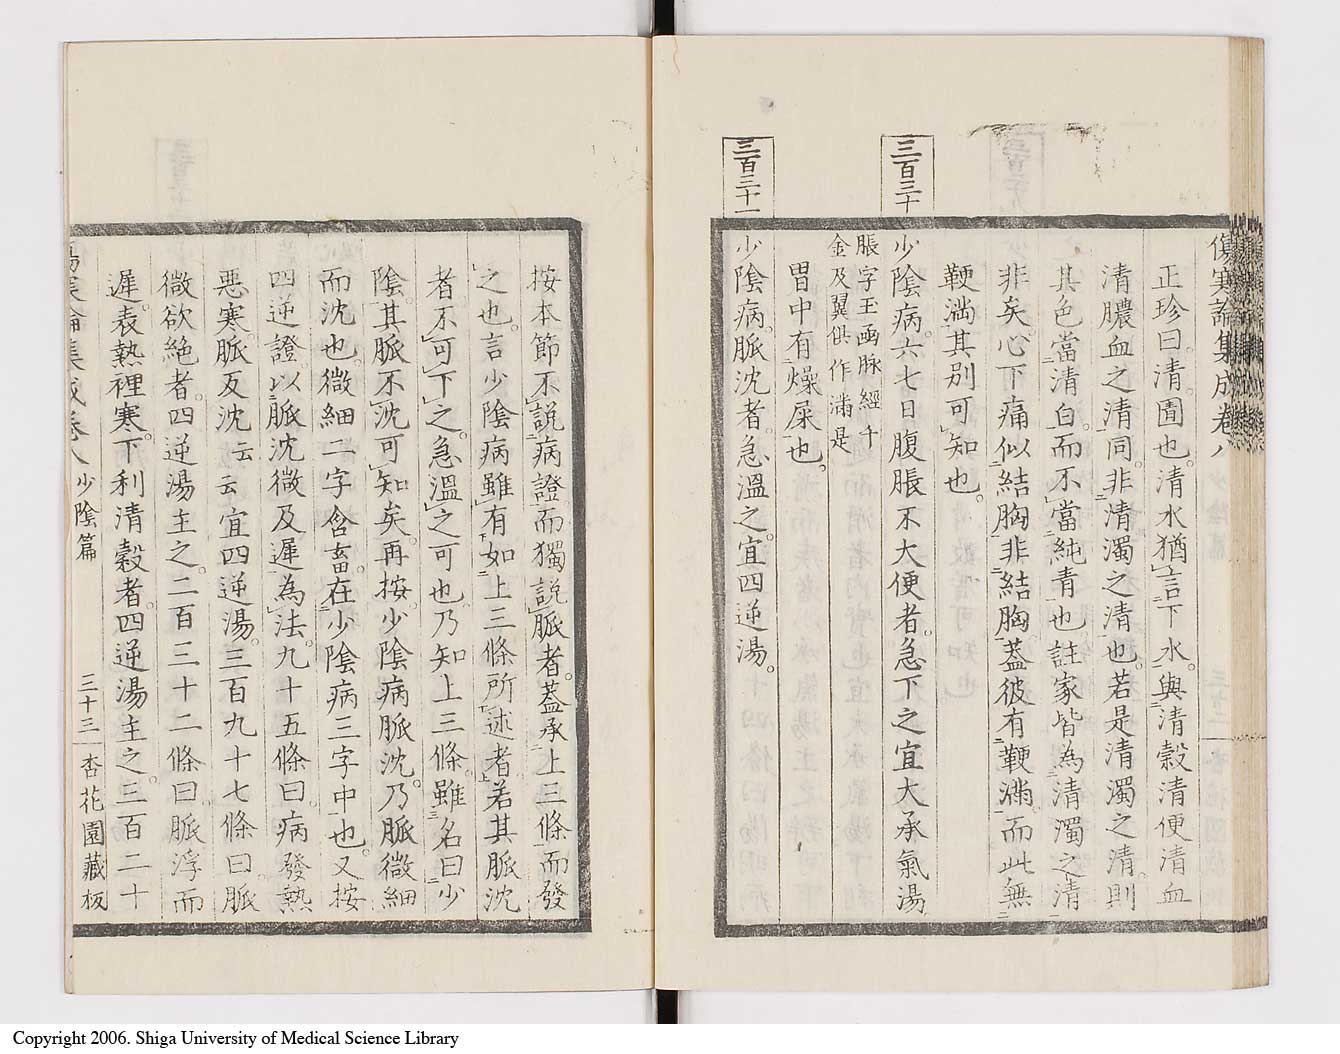 傷寒論集成卷八
正珍曰清圊也清水猶言下水與清穀清便清血
清膿血之清同非清濁之清也若是清濁之清則
其色當清白而不當純青也註家皆為清濁之清
非矣心下痛似結胸非結胸蓋彼有鞕滿而此無
鞕滿其別可知也
三百三十
少陰病六七日腹脹不大便者急下之宜大承氣湯
脹字玉函脉經千
金及翼俱作滿是
胃中有燥屎也
三百三十一
少陰病脈沈者急溫之宜四逆湯
按本節不說病證而獨說脈者蓋承上三條而發
之也言少陰病雖有如上三條所述者若其脈沈
者不可下之急溫之可也乃知上三條雖名曰少
陰其脈不沈可知矣再按少陰病脈沈乃脈微細
而沈也微細二字含畜在少陰病三字中也又按
四逆證以脈沈微及遲為法九十五條曰病發熱
惡寒脈反沈云云宜四逆湯三百九十七條曰脈
微欲絕者四逆湯主之二百三十二條曰脈浮而
遲表熱裡寒下利清穀者四逆湯主之三百二十
傷寒論集成卷八 少陰篇 三十三 杏花園藏板
Copyright 2006. Shiga University of Medical Science Library